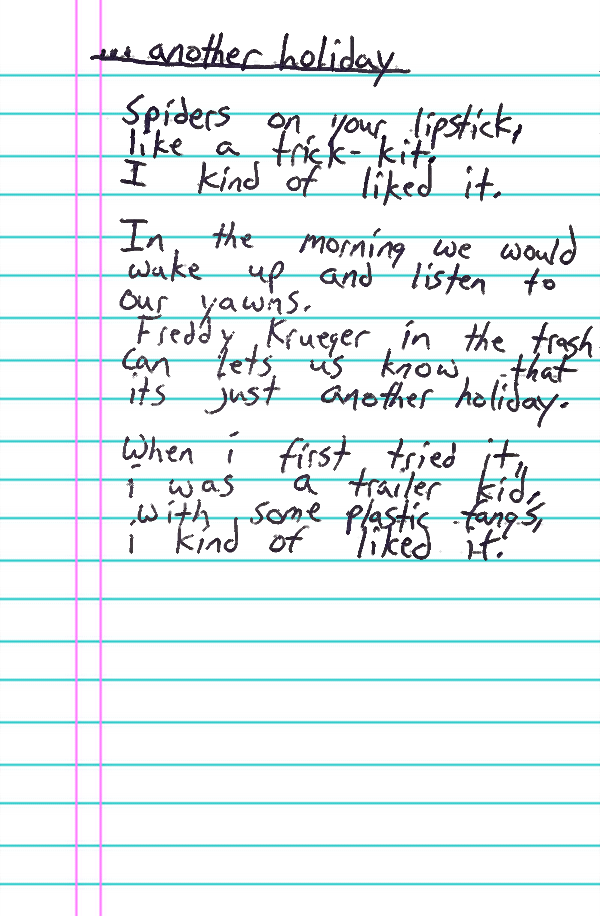 ... another holiday
Spiders on your lipstick,
like a trick-kit,
I kind of liked it.
In the morning we would
wake up and listen to
our yawns.
Freddy Krueger in the trash
can lets us know that
its just another holiday.
When i first tried it,
i was a trailer kid,
with some plastic fangs,
i kind of liked it.